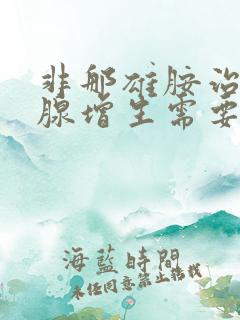 非那雄胺治
腺增生需要
海蓝時間
未经同意禁止转载